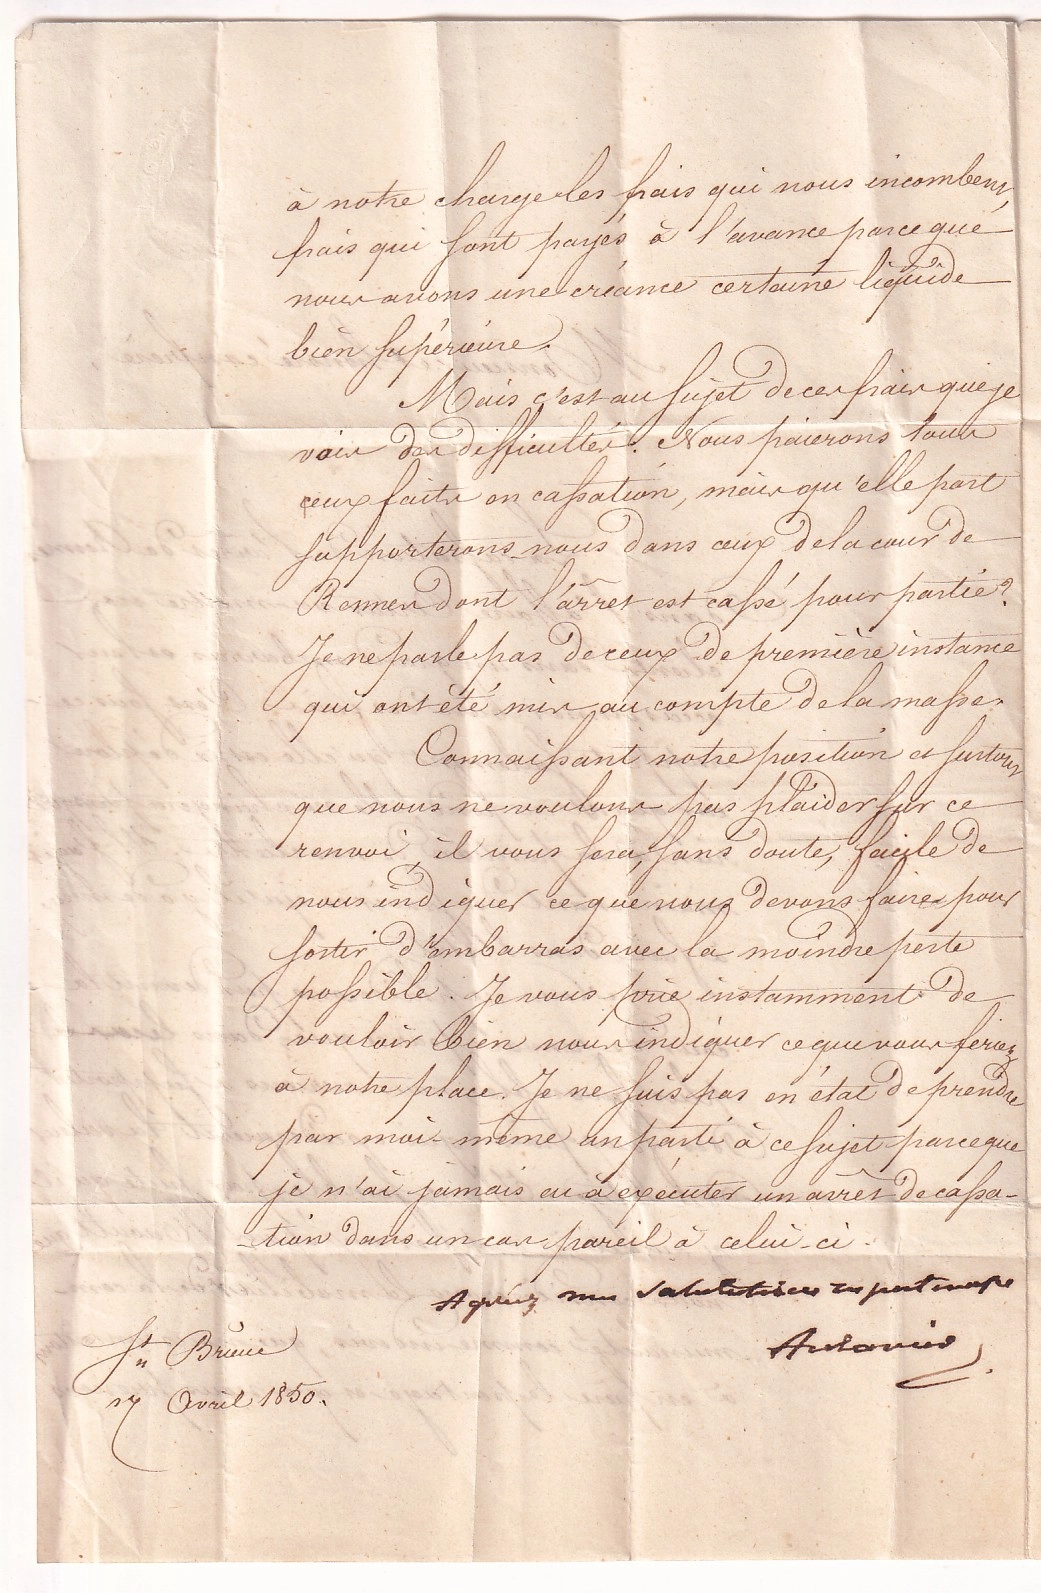 à notre charge les frais qui nous incombent,
frais qui sont payés à l'avance parceque
nous avons une créance certaine liquide
bien supérieure.
Mais c'est au sujet de ces frais que je
vois des difficultés. Nous paierons tous
ceux faits en cassation, mais qu'elle part
supporterons-nous dans ceux de la cour de
Rennes dont l'arret est cassé pour partie?
Je ne parle pas de ceux de première instance
qui ont été mis au compte de la masse.
Connaissant notre position et surtout
que nous ne voulons pas plaider sur ce
renvoi, il vous sera, sans doute, facile de
nous indiquer ce que nous devons faire pour
sortir d'embarras avec la moindre perte
possible. Je vous prie instamment de
vouloir bien nous indiquer ce que vous feriez
à notre place. Je ne suis pas en état de prendre
par moi-même un parti à ce sujet parceque
je n'ai jamais eu à exécuter un arrêt de cassa-
-tion dans un cas pareil à celui-ci.
Agréez mes salutations
St Brieuc
17 Avril 1850.